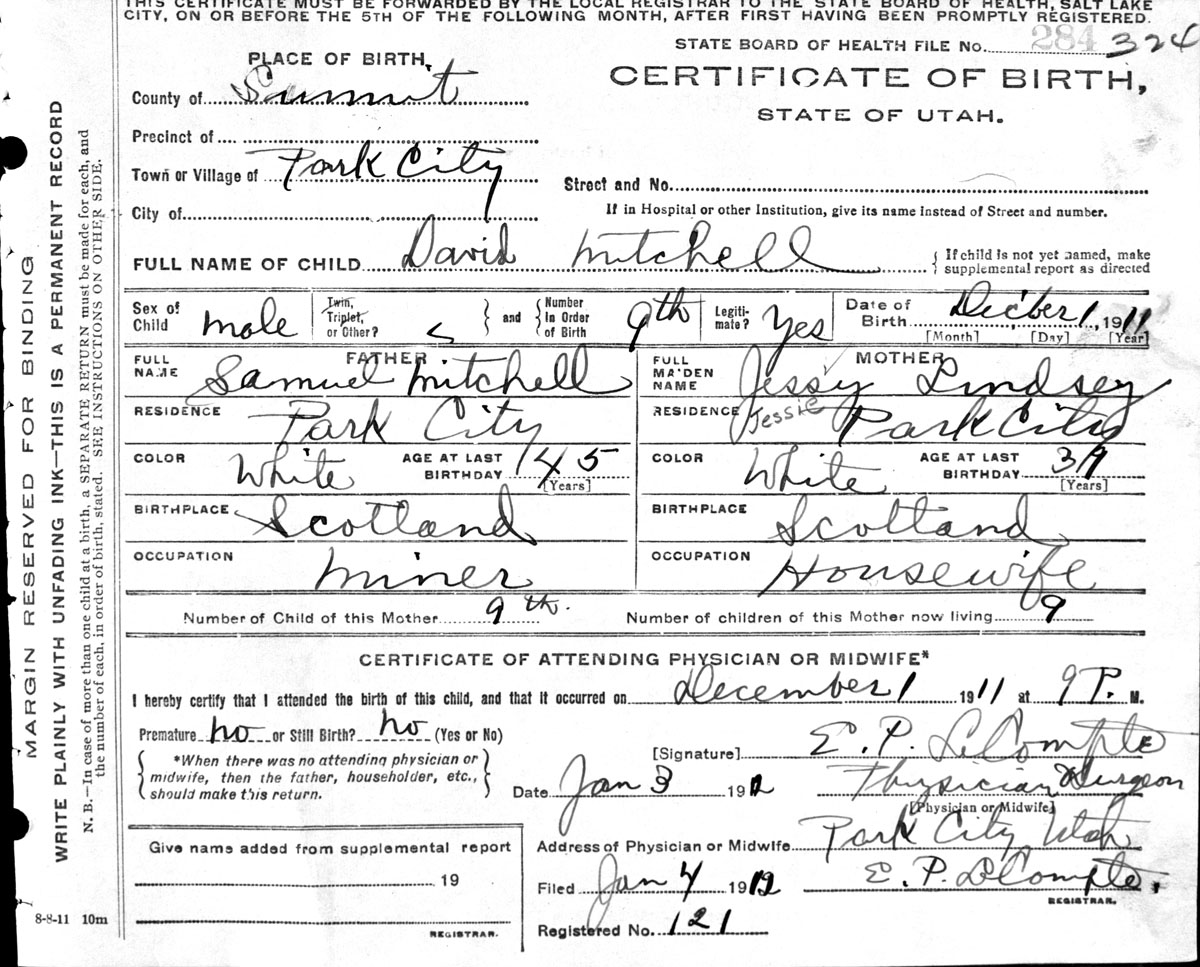 THIS CERTIFICATE MUST BE FORWARDED BY THE LOCAL REGISTRAR TO THE STATE BOARD OF HEALTH, SALT LAKE
CITY, ON OR BEFORE THE 5TH OF THE FOLLOWING MONTH, AFTER FIRST HAVING BEEN PROMPTLY REGISTERED.
STATE BOARD OF HEALTH FILE No. 284 324
PLACE OF BIRTH,
CERTIFICATE OF BIRTH,
County of Summit
STATE OF UTAH.
Precinct of
Town or Village of Park City
Street and No.
City of
If in Hospital or other Institution, give its name instead of Street and number.
FULL NAME OF CHILD David Mitchell
{ If child is not yet named, make
supplemental report as directed
Sex of Child male
Twin, Triplet, or Other?
and
Number In Order of Birth 9th
Legiti-mate? Yes
Date of Birth Dec'ber 1, 1911
[Month] [Day] [Year]
FATHER
FULL NAME Samuel Mitchell
MOTHER
FULL MAIDEN NAME Jessy Lindsey
Jessie
RESIDENCE Park City
RESIDENCE Park City
COLOR White AGE AT LAST BIRTHDAY 45 [Years]
COLOR White AGE AT LAST BIRTHDAY 39 [Years]
BIRTHPLACE Scotland
BIRTHPLACE Scotland
OCCUPATION Miner
OCCUPATION Housewife
Number of Child of this Mother 9th. Number of children of this Mother now living 9
CERTIFICATE OF ATTENDING PHYSICIAN OR MIDWIFE*
I hereby certify that I attended the birth of this child, and that it occurred on December 1 1911 at 9 P. M.
Premature no or Still Birth? no (Yes or No)
*When there was no attending physician or
midwife, then the father, householder, etc.,
should make this return.
[Signature] E. P. LeCompte
Date Jan 3 1912 Physician & Surgeon
[Physician or Midwife]
Address of Physician or Midwife Park City Utah
Filed Jan 4 1912 E. P. LeCompte.
REGISTRAR.
Registered No. 121
Give name added from supplemental report
19
REGISTRAR.
8-8-11 10m
MARGIN RESERVED FOR BINDING
WRITE PLAINLY WITH UNFADING INK—THIS IS A PERMANENT RECORD
N. B.—In case of more than one child at a birth, a SEPARATE RETURN must be made for each, and
the number of each, in order of birth, stated. SEE INSTRUCTIONS ON OTHER SIDE.